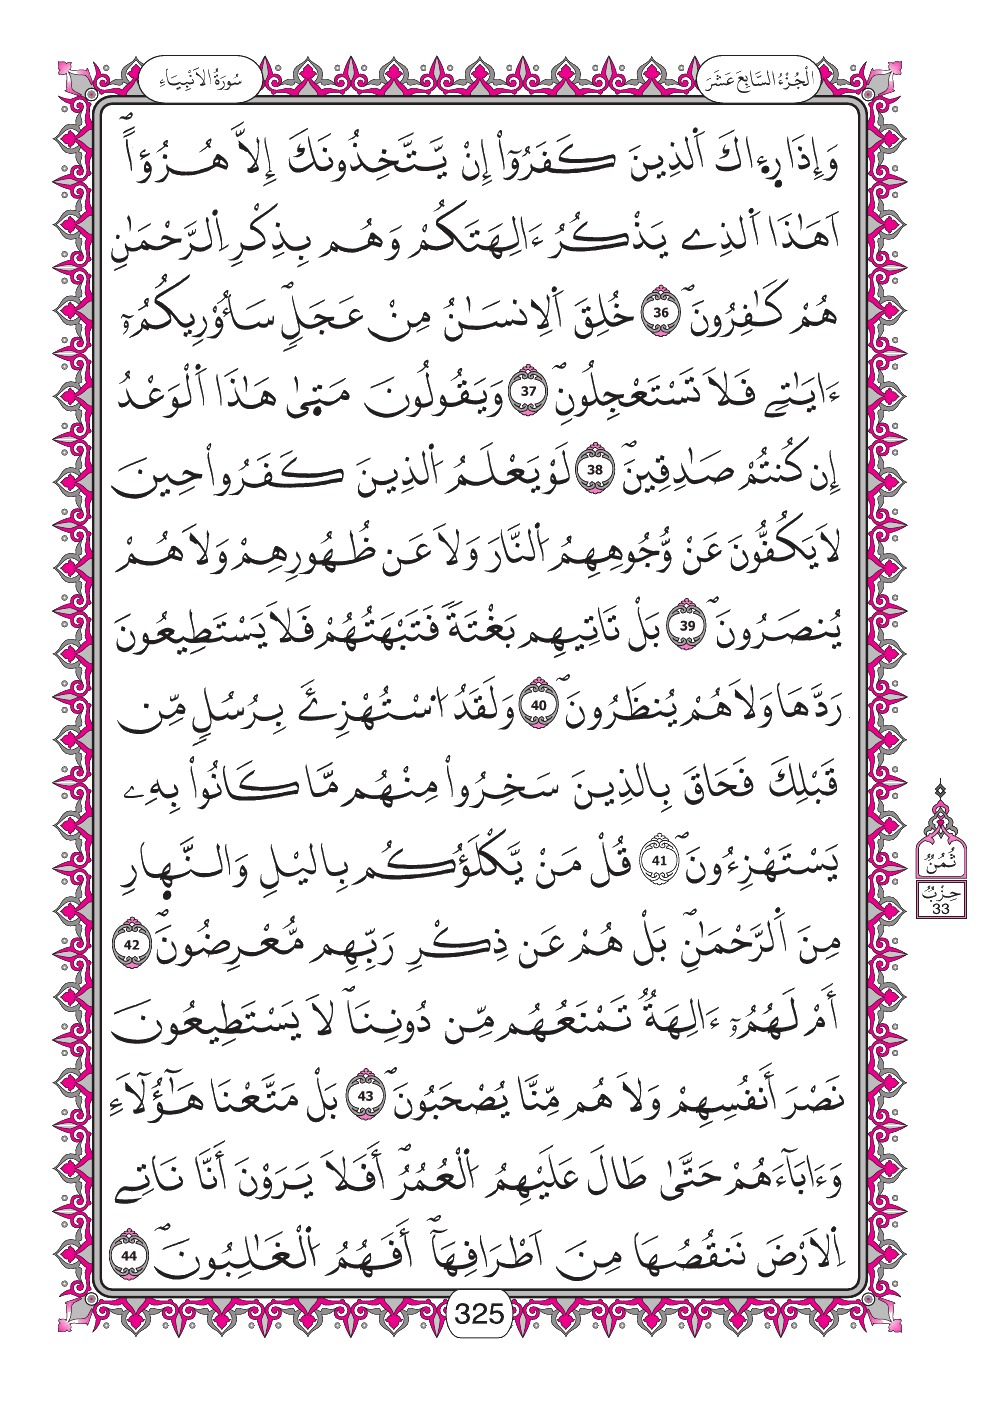 الْجُزْءُ السَّابِعَ عَشَرَ
سُورَةُ الْأَنْبِيَاءِ
وَإِذَا رِءَاكَ اَ۬لذِينَ كَفَرُوٓاْ إِنْ يَّتَّخِذُونَكَ إِلَّا هُزُؤاًۖ
اَهَٰذَا اَ۬لذِے يَذْكُرُ ءَالِهَتَكُمْ وَهُم بِذِكْرِ اِ۬لرَّحْمَٰنِ
هُمْ كَٰفِرُونَۖ 36 خُلِقَ اَ۬لِانسَٰنُ مِنْ عَجَلٖۖ سَأُوْرِيكُمُۥٓ
ءَايَٰتِے فَلَا تَسْتَعْجِلُونِۖ 37 وَيَقُولُونَ مَتَىٰ هَٰذَا اَ۬لْوَعْدُ
إِن كُنتُمْ صَٰدِقِينَۖ 38 لَوْ يَعْلَمُ اُ۬لذِينَ كَفَرُواْ حِينَ
لَا يَكُفُّونَ عَنْ وُّجُوهِهِمُ اُ۬لنَّارَ وَلَا عَن ظُهُورِهِمْ وَلَا هُمْ
يُنصَرُونَۖ 39 بَلْ تَاتِيهِم بَغْتَةٗ فَتَبْهَتُهُمْ فَلَا يَسْتَطِيعُونَ
رَدَّهَا وَلَا هُمْ يُنظَرُونَۖ 40 وَلَقَدُ اُ۟سْتُهْزِئَ بِرُسُلٖ مِّن
قَبْلِكَ فَحَاقَ بِالذِينَ سَخِرُواْ مِنْهُم مَّا كَانُواْ بِهِۦ
يَسْتَهْزِءُونَۖ 41 قُلْ مَنْ يَّكْلَؤُكُم بِاليْلِ وَالنَّهَارِ
مِنَ اَ۬لرَّحْمَٰنِۖ بَلْ هُمْ عَن ذِكْرِ رَبِّهِم مُّعْرِضُونَۖ 42
أَمْ لَهُمُۥٓ ءَالِهَةٞ تَمْنَعُهُم مِّن دُونِنَاۖ لَا يَسْتَطِيعُونَ
نَصْرَ أَنفُسِهِمْ وَلَا هُم مِّنَّا يُصْحَبُونَۖ 43 بَلْ مَتَّعْنَا هَٰٓؤُلَآءِ
وَءَابَآءَهُمْ حَتَّىٰ طَالَ عَلَيْهِمُ اُ۬لْعُمُرُۖ أَفَلَا يَرَوْنَ أَنَّا نَاتِے
اِ۬لَارْضَ نَنقُصُهَا مِنَ اَطْرَافِهَآۖ أَفَهُمُ اُ۬لْغَٰلِبُونَۖ 44
ثُمُنٌ
حِزْبٌ
33
325